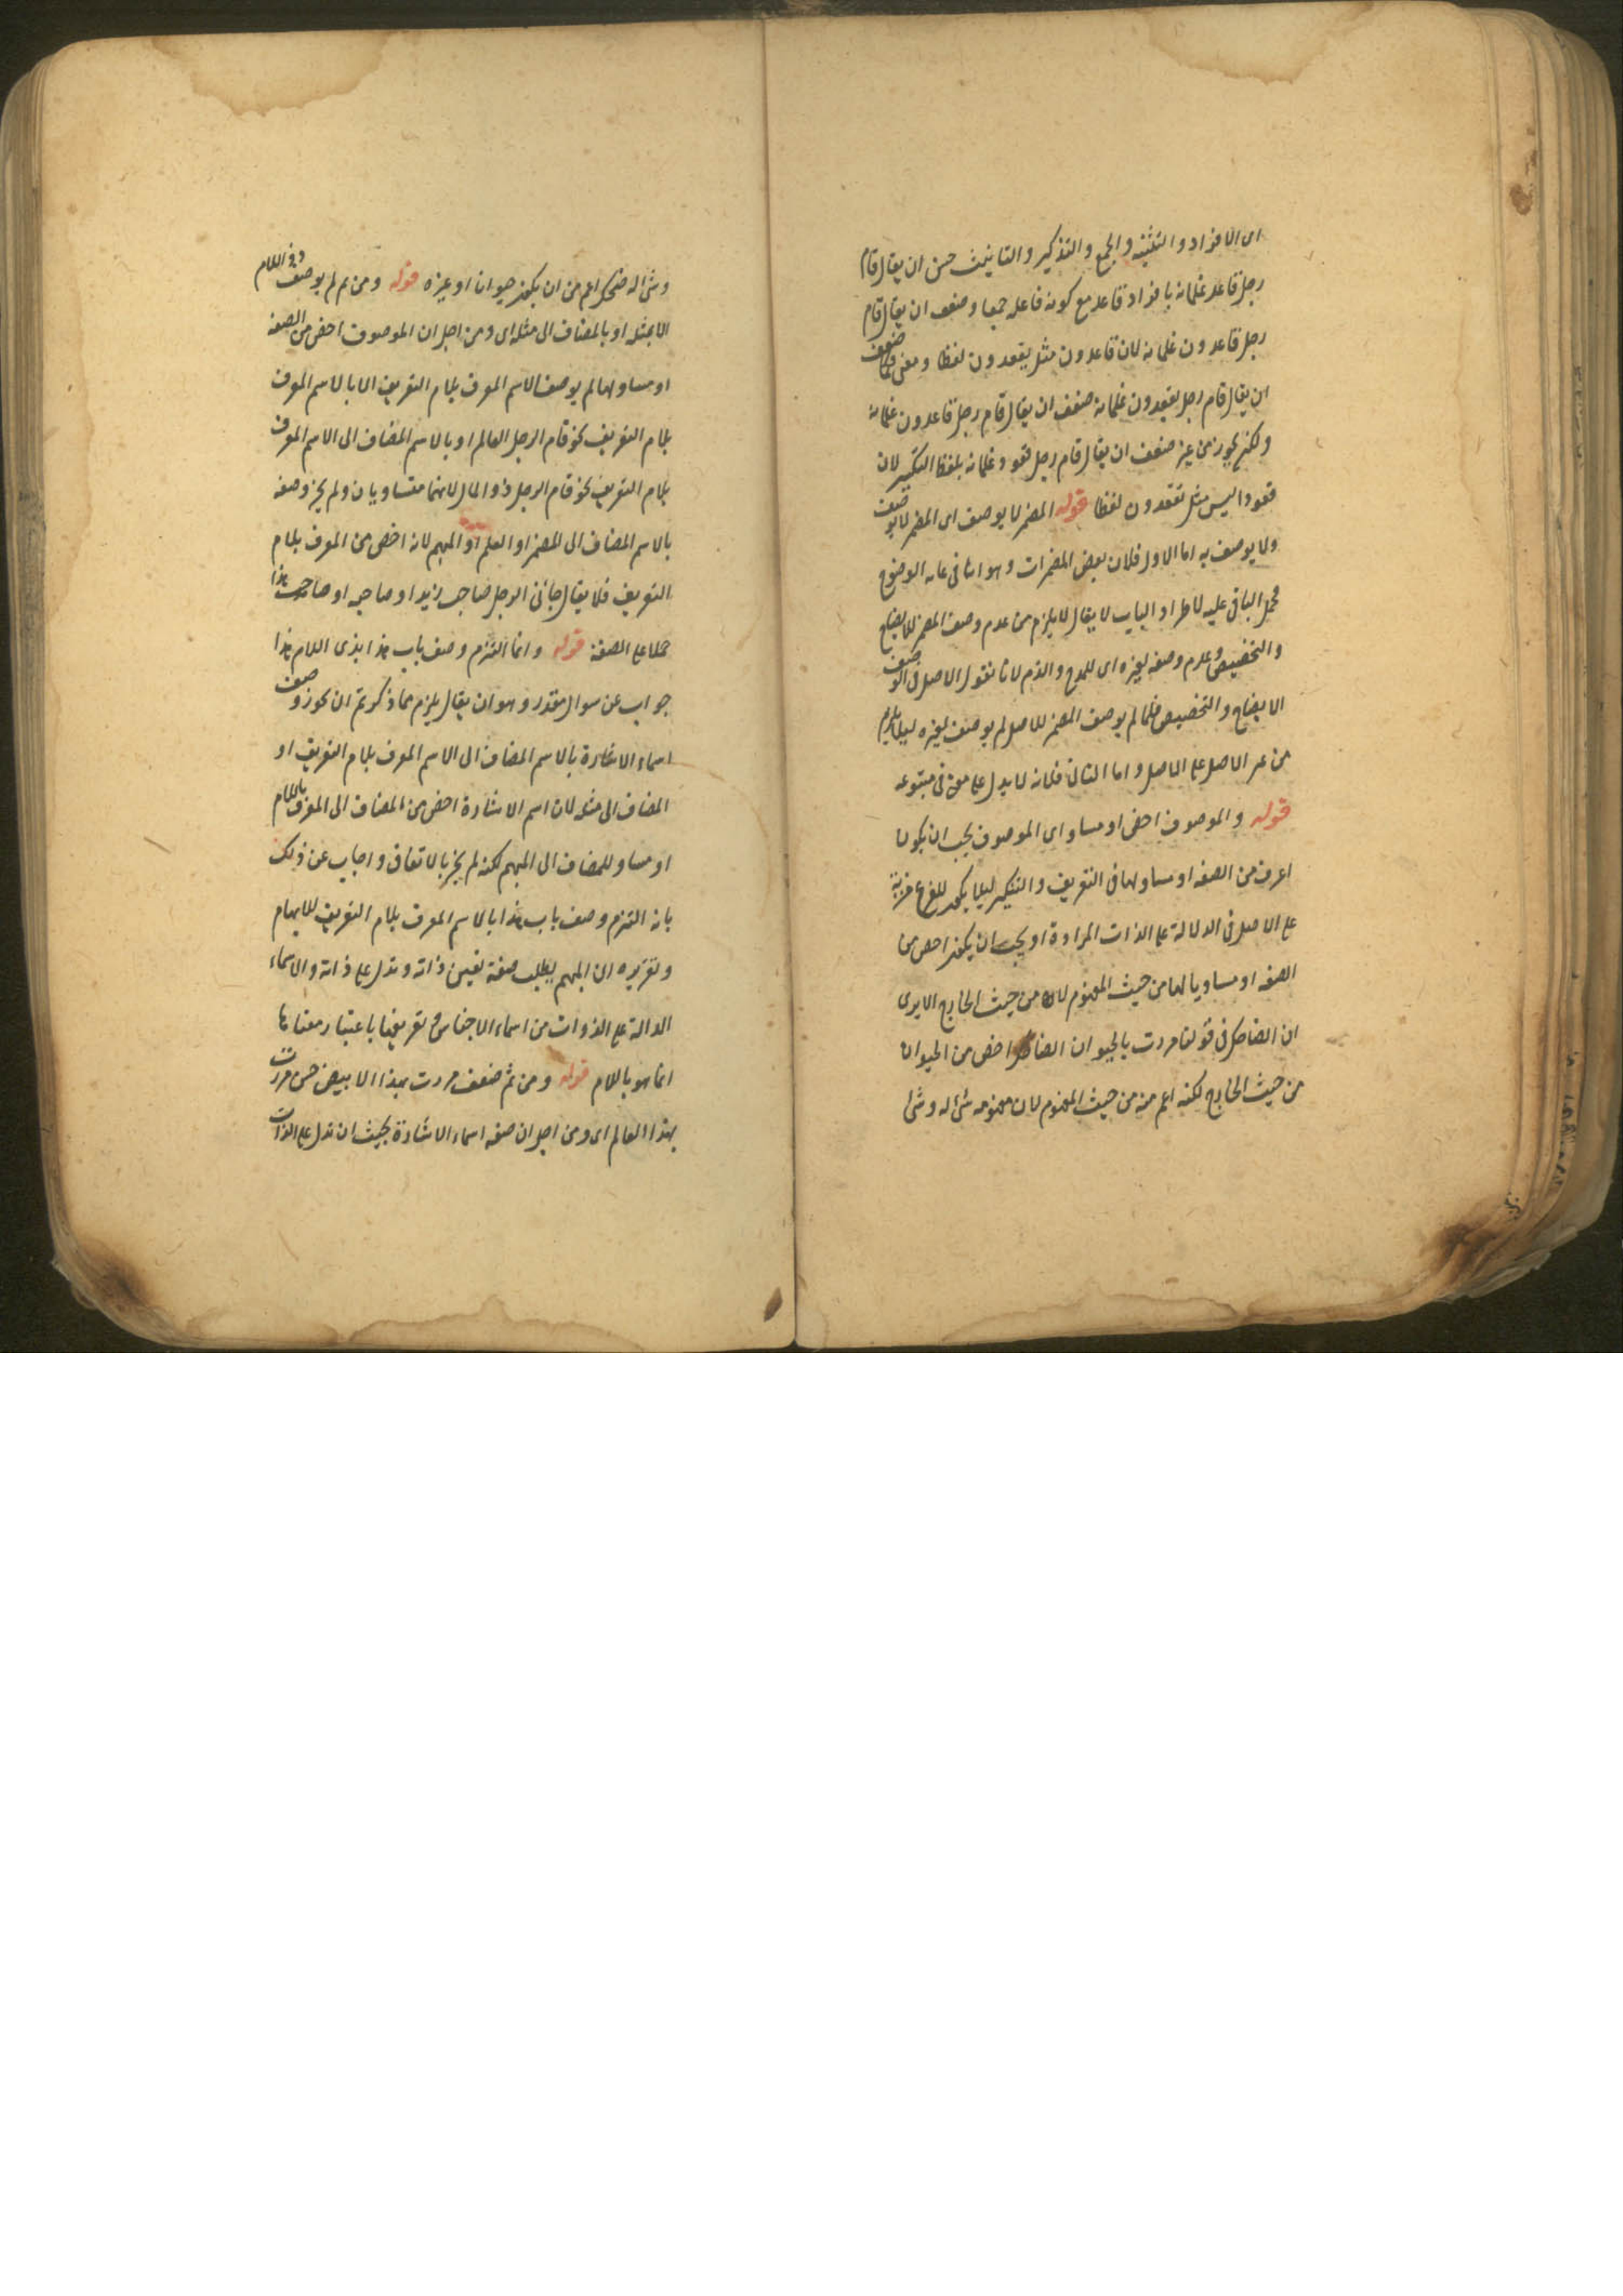 اى الافراد والتثنية والجمع والتذكير والتانيث حسن ان يقال قام
رجل قاعد غلمانه بافراد قاعد مع كونه فاعله جمعا وضعف ان يقال قام
رجل قاعدون غلمانه لان قاعدون مثل يقعدون لفظا ومعنى فكما ضعف
ان يقال قام رجل يقعدون غلمانه ضعف ان يقال قام رجل قاعدون غلمانه
ولكن يجوز من غير ضعف ان يقال قام رجل قعود غلمانه بلفظ التكسير لان
قعودا ليس مثل يقعدون لفظا قوله المضمر لا يوصف اى المضمر لا يوصف
ولا يوصف به اما الاول فلان بعض المضمرات وهو انا فى غاية الوضوح
فحمل الباقى عليه لاطراد الباب لا يقال لا يلزم من عدم وصف المضمر للايضاح
والتخصيص عدم وصفه لغيره اى للمدح والذم لانا نقول الاصل فى الوصف
الايضاح والتخصيص فلما لم يوصف المضمر للاصل لم يوصف لغيره ليلا يلزم
من غير الاصل على الاصل واما الثانى فلانه لا يدل على معنى فى متبوعه
قوله والموصوف اخص او مساو اى الموصوف يجب ان يكون
اعرف من الصفه او مساو لها فى التعريف والتنكير ليلا يكون للفرع مزية
على الاصل فى الدلالة على الذات المرادة او يجب ان يكون اخص من
الصفه او مساويا لها من حيث المفهوم لا من حيث الخارج الا يرى
ان الضاحك فى قولنا مررت بالحيوان الضاحك اخص من الحيوان
من حيث الخارج لكنه اعم منه من حيث المفهوم لان مفهومه شى له وشى
وشى له ضحك اعم من ان يكون حيوانا او غيره قوله ومن ثم لم يوصف ذو اللام
الا بمثله او بالمضاف الى مثله اى ومن اجل ان الموصوف اخص من الصفه
او مساو لها لم يوصف الاسم المعرف بلام التعريف الا بالاسم المعرف
بلام التعريف نحو قام الرجل العالم او بالاسم المضاف الى الاسم المعرف
بلام التعريف نحو قام الرجل ذو المال لانهما متساويان ولم يجز وصفه
بالاسم المضاف الى المضمر او العلم او المبهم لانه اخص من المعرف بلام
التعريف فلا يقال جائنى الرجل صاحب زيد او صاحبه او صاحب هذا
حملا على الصفة قوله وانما التزم وصف باب هذا بذى اللام هذا
جواب عن سوال مقدر وهو ان يقال يلزم مما ذكرتم ان يجوز وصف
اسماء الاشارة بالاسم المضاف الى الاسم المعرف بلام التعريف او
المضاف الى مثله لان اسم الاشارة اخص من المضاف الى المعرف باللام
او مساو للمضاف الى المبهم لكنه لم يجز بالاتفاق واجاب عن ذلك
بانه التزم وصف باب هذا بالاسم المعرف بلام التعريف للابهام
وتقريره ان المبهم يطلب صفة تعين ذاته وتدل على ذاته والاسماء
الدالة على الذوات من اسماء الاجناس وتعريفها باعتبار معناها
انما هو باللام قوله ومن ثم ضعف مررت بهذا الابيض حسن مررت
بهذا العالم اى ومن اجل ان صفه اسماء الاشارة بحيث ان تدل على الذات